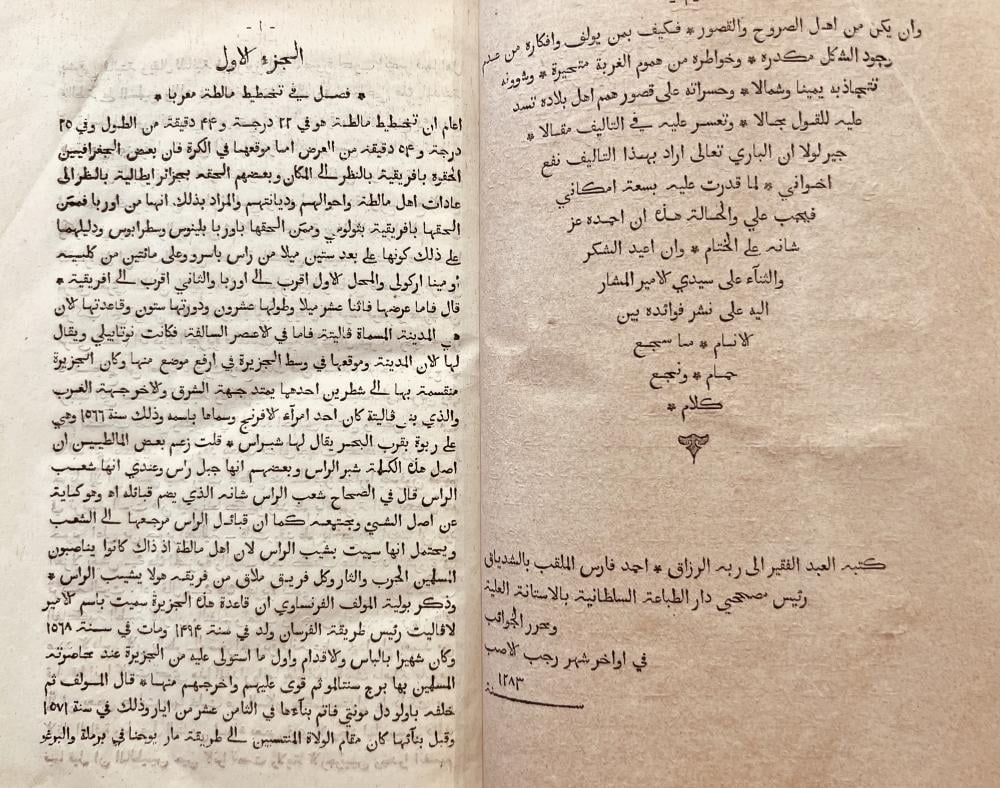 وان يكن من اهل الصروح والقصور * فكيف بمن يولف وافكاره من عدم
وجود الشكل مكدره * وخواطره من هموم الغربة متحيرة * وشوونه
تتجاذبه يمينا وشمالا * وحسراته على قصور همم اهل بلاده تسد
عليه للقول مجالا * وتعسر عليه في التاليف مقالا *
جير لولا ان الباري تعالى اراد بهذا التاليف نفع
اخواني * لما قدرت عليه بسعة امكاني
فيجب علي والحالة هذه ان احمده عز
شانه على الختام * وان اعيد الشكر
والثنآء على سيدي الامير المشار
اليه على نشر فوائده بين
الانام * ما سجع
حمام * ونجع
كلام *
كتبه العبد الفقير الى ربه الرزاق * احمد فارس الملقب بالشدياق
رئيس مصححي دار الطباعة السلطانية بالاستانة العلية
ومحرر الجوائب
في اواخر شهر رجب الاصب
سنة ١٢٨٣
- ١ -
الجزء الاول
* فصل في تخطيط مالطة معربا *
اعلم ان تخطيط مالطة هو في ٢٢ درجة و ٤٤ دقيقة من الطول وفي ٣٥
درجة و ٥٤ دقيقة من العرض اما موقعها في الكرة فان بعض الجغرافيين
الحقوة بافريقية بالنظر الى المكان وبعضهم الحقه بجزائر ايطالية بالنظر الى
عادات اهل مالطة واحوالهم وديانتهم والمراد بذلك انها من اوربا فممن
الحقها بافريقية بثولومي وممن الحقها باوربا بلينوس وسطرابوس ودليلهما
على ذلك كونها على بعد ستين ميلا من راس باسرو وعلى مائتين من كلبية
ومينا اركولي والمحل الاول اقرب الى اوربا والثاني اقرب الى افريقية *
قال فاما عرضها فاثنا عشر ميلا وطولها عشرون ودورتها ستون وقاعدتها لان
هي المدينة المسماة فاليتة فاما في الاعصر السالفة فكانت نوتابيلي ويقال
لها لان المدينة وموقعها في وسط الجزيرة في ارفع موضع منها وكان الجزيرة
منقسمة بها الى شطرين احدها يمتد جهة الشرق والاخر جهة الغرب
والذي بنى فاليتة كان احد امرآء الافرنج وسماها باسمه وذلك سنة ١٥٦٦ وهي
على ربوة بقرب البحر يقال لها شبراس * قلت زعم بعض المالطيين ان
اصل هذه الكلمة شبر الراس وبعضهم انها جبل راس وعندي انها شعب
الراس قال في الصحاح شعب الراس شانه الذي يضم قبائله اه وهو كناية
عن اصل الشي ومجتمعه كما ان قبائل الراس مرجعها الى الشعب
ويحتمل انها سميت بشيب الراس لان اهل مالطة اذ ذاك كانوا يناصبون
المسلمين الحرب والثار وكل فريق ملاق من فريقه هولا يشيب الراس *
وذكر بولية المولف الفرنساوي ان قاعدة هذه الجزيرة سميت باسم الامير
لافاليت رئيس طريقة الفرسان ولد في سنة ١٤٩٤ ومات في سنة ١٥٦٨
وكان شهيرا بالباس والاقدام واول ما استولى عليه من الجزيرة عند محاصرته
المسلمين بها برج سنتالمو ثم قوى عليهم واخرجهم منها * قال المولف ثم
خلفه باولو دل مونتي فاتم بنآءها في الثامن عشر من ايار وذلك في سنة ١٥٧١
وقبل بنآئها كان مقام الولاة المنتسبين الى طريقة مار يوحنا في برملة والبرغو